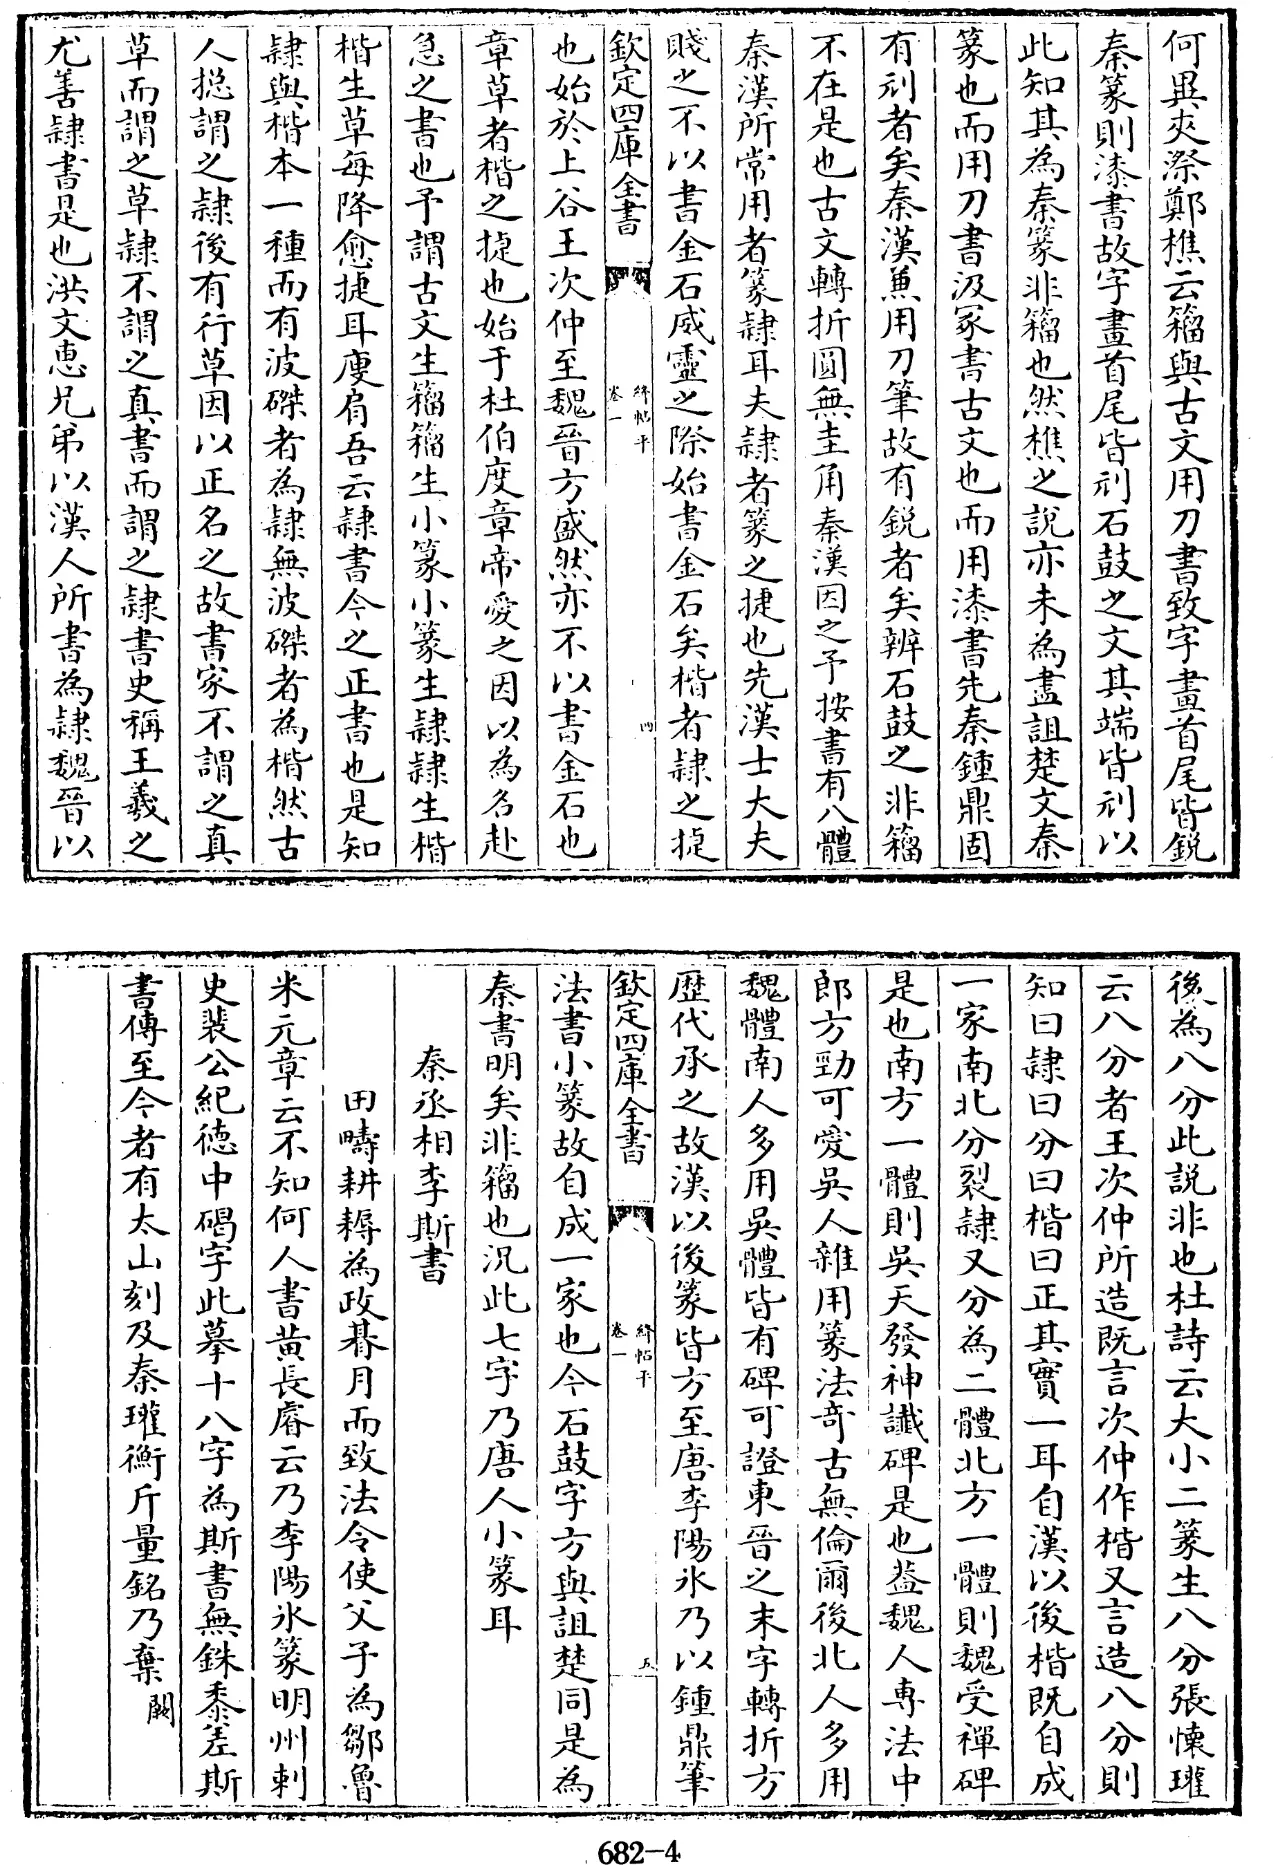 何異夾漈鄭樵云籀與古文用刀書致字畫首尾皆銳
秦篆則漆書故字畫首尾皆刓石鼓之文其端皆刓以
此知其為秦篆非籀也然樵之說亦未為盡詛楚文秦
篆也而用刀書汲冢書古文也而用漆書先秦鍾鼎固
有刓者矣秦漢兼用刀筆故有銳者矣辨石鼓之非籀
不在是也古文轉折圓無圭角秦漢因之予按書有八體
秦漢所常用者篆隷耳夫隷者篆之捷也先漢士大夫
賤之不以書金石威靈之際始書金石矣楷者隷之捷
欽定四庫全書
絳帖平
卷一
四
也始於上谷王次仲至魏晉方盛然亦不以書金石也
章草者楷之捷也始于杜伯度章帝愛之因以為名赴
急之書也予謂古文生籀籀生小篆小篆生隷隷生楷
楷生草每降愈捷耳庾肩吾云隷書今之正書也是知
隷與楷本一種而有波磔者為隷無波磔者為楷然古
人揔謂之隷後有行草因以正名之故書家不謂之真
草而謂之草隷不謂之真書而謂之隷書史稱王羲之
尤善隷書是也洪文惠兄弟以漢人所書為隷魏晉以
後為八分此說非也杜詩云大小二篆生八分張懷瓘
云八分者王次仲所造既言次仲作楷又言造八分則
知曰隷曰分曰楷曰正其實一耳自漢以後楷既自成
一家南北分裂隷又分為二體北方一體則魏受禪碑
是也南方一體則吳天發神讖碑是也葢魏人專法中
郎方勁可愛吳人雜用篆法奇古無倫爾後北人多用
魏體南人多用吳體皆有碑可證東晉之末字轉折方
歴代承之故漢以後篆皆方至唐李陽氷乃以鍾鼎筆
欽定四庫全書
絳帖平
卷一
五
法書小篆故自成一家也今石鼓字方與詛楚同是為
秦書明矣非籀也況此七字乃唐人小篆耳
秦丞相李斯書
田疇耕耨為政朞月而致法令使父子為鄒魯
米元章云不知何人書黃長睿云乃李陽氷篆明州刺
史裴公紀德中碣字此摹十八字為斯書無銖黍差斯
書傳至今者有太山刻及秦瓘衡斤量銘乃棄闕
682-4